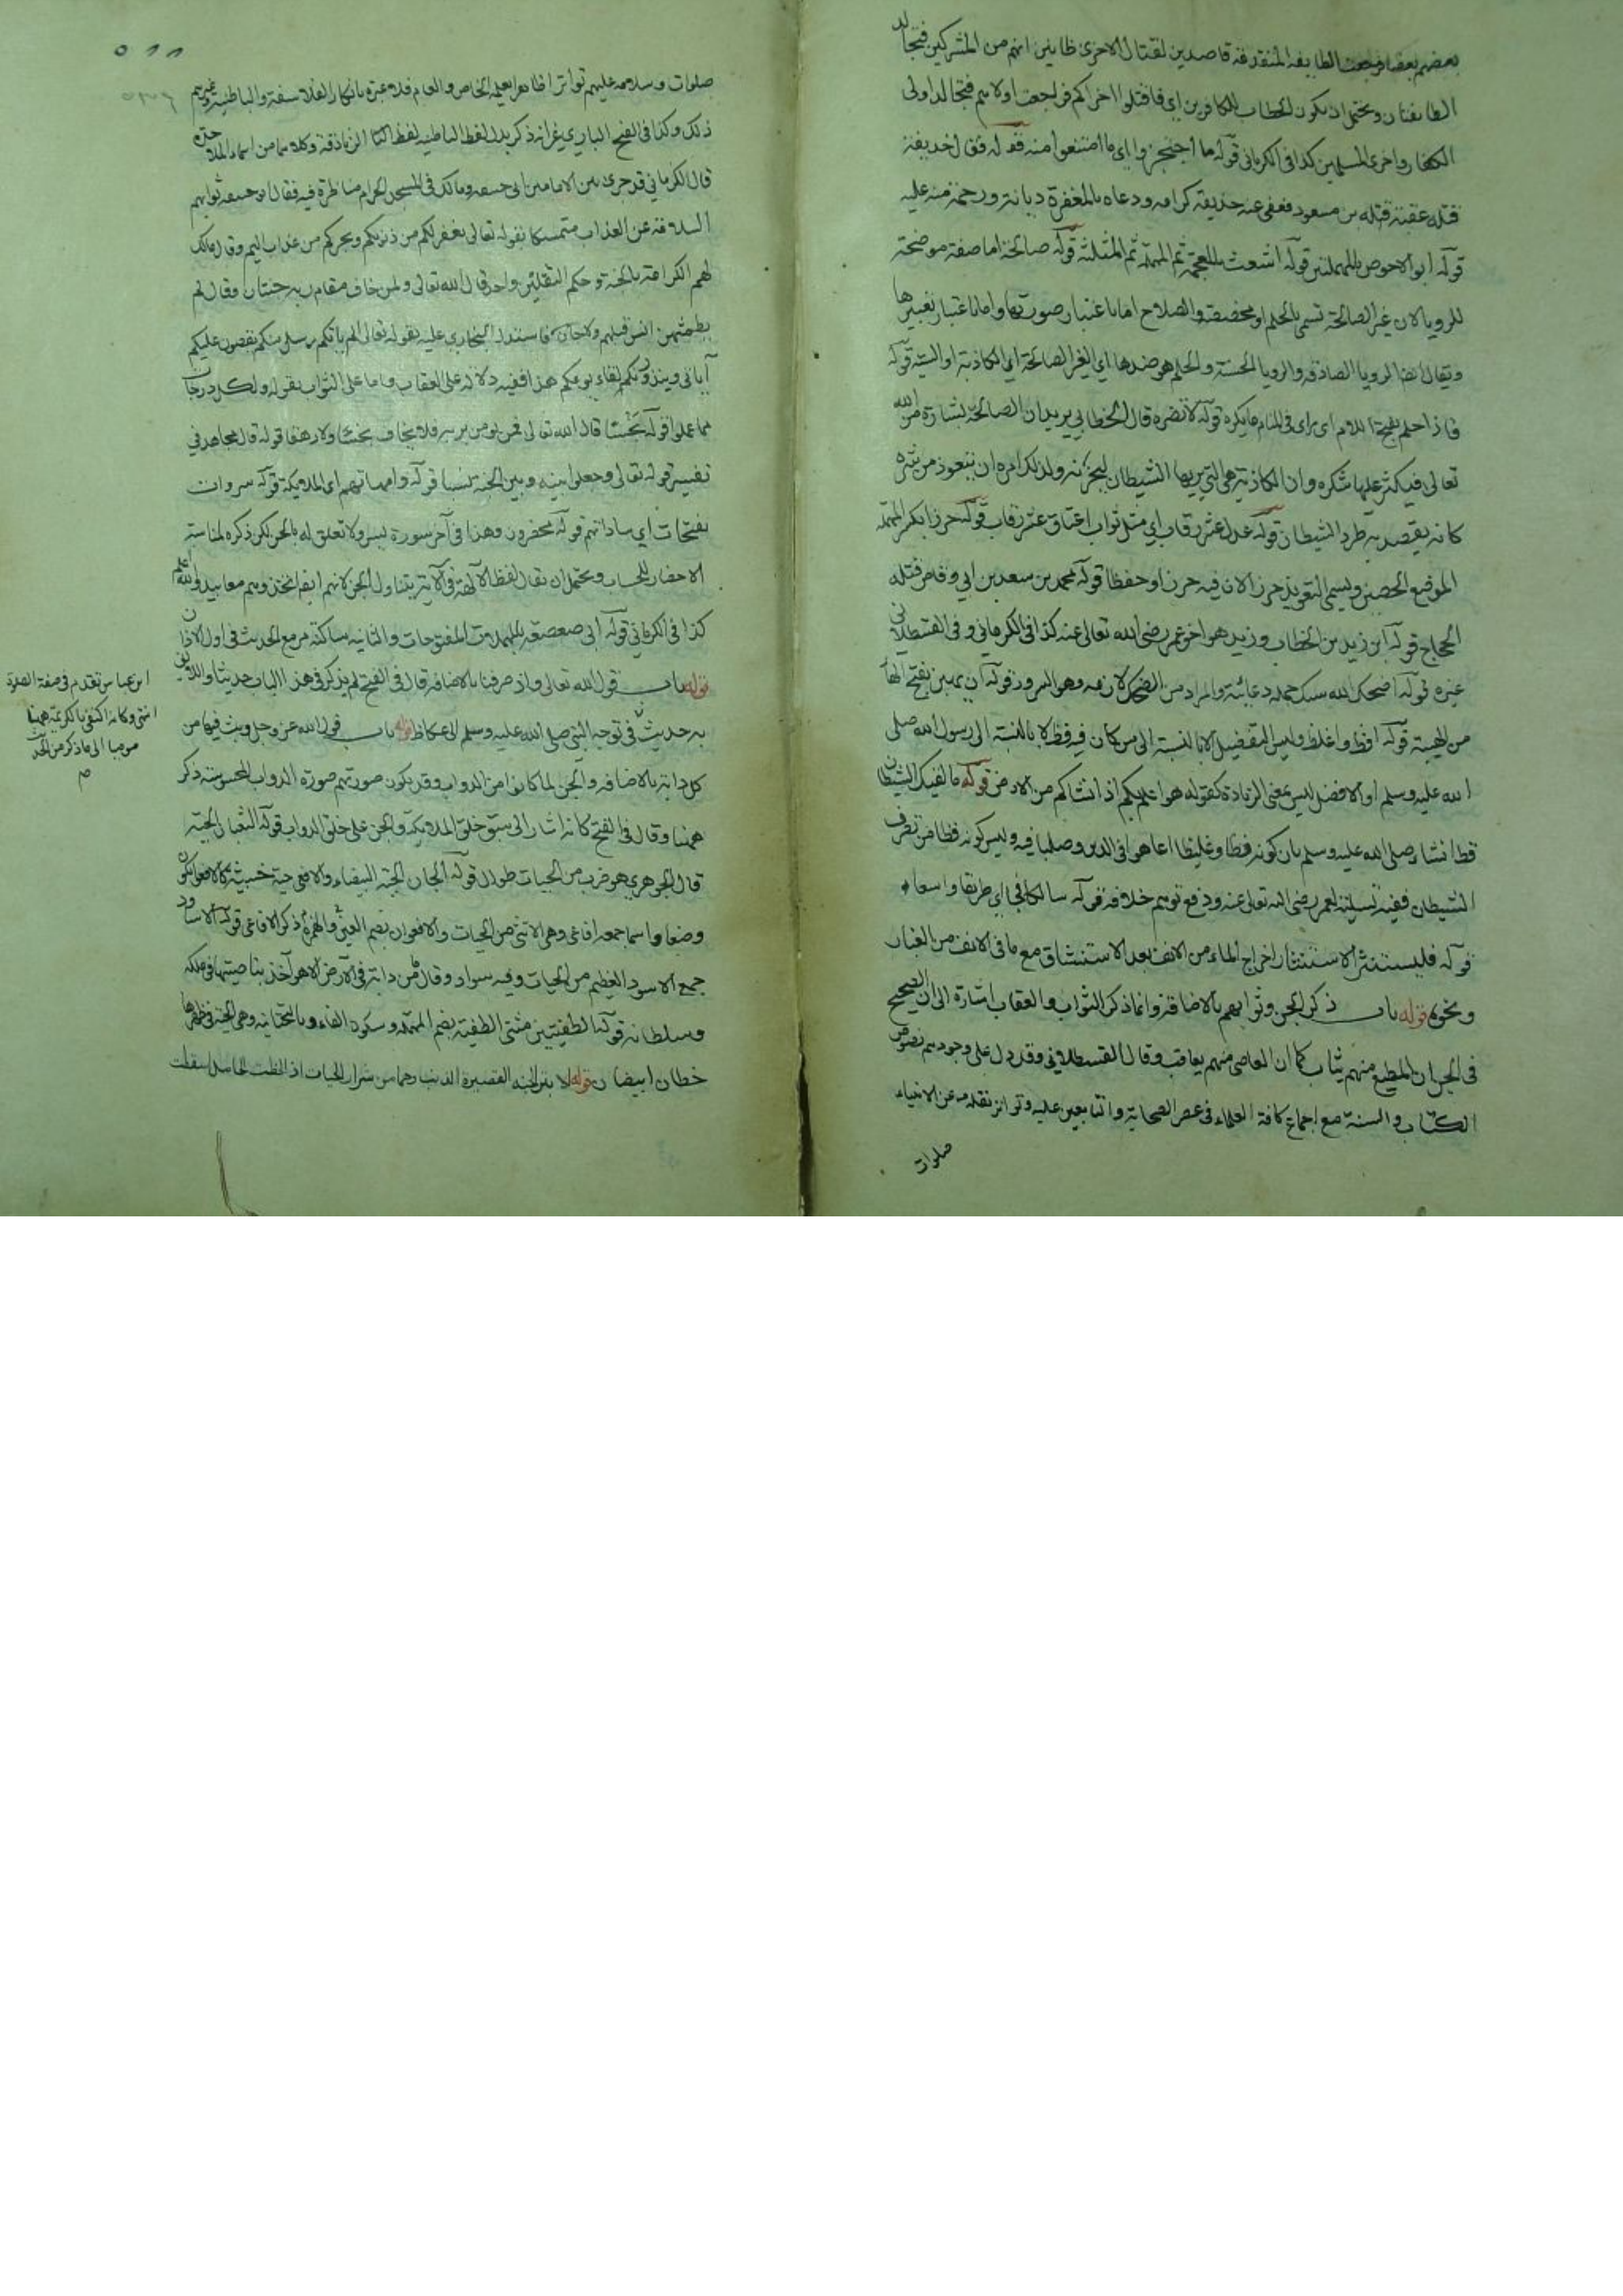 بعضهم بعضا فرجعت الطايفه المتقدمة قاصدين لقتال الاخرى ظانين انهم من المشركين فتجالد
الطايفتان ويحتمل ان يكون الخطاب للكافرين اي فاقتلوا اخراكم فرجعت اولاهم فتجالد اولى
الكفار واخرى المسلمين كذا في الكرماني قوله ما احتجزوا اي ما امتنعوا منه قوله فقال حذيفة
قتله عقبة بن مسعود فعفى عنه حذيفة ودعاه بالمغفرة ديانة ورحمة منه عليه
قوله ابو الاحوص بالمهملتين قوله اشعث بالمعجمة ثم المهملة ثم المثلثة قوله صالحة اما صفة موضحة
للرويا لان غير الصالحة تسمى بالحلم او مخصصة والصلاح اما باعتبار صورتها واما باعتبار تعبيرها
ويقال لها الرويا الصادقة والرويا الحسنة والحلم هو ضدها اي الغير الصالحة اي الكاذبة او السيئة قوله
فاذا حلم بفتح اللام اى راى في المنام ما يكره قوله لا تضره قال الخطابي يريد ان الصالحة بشارة من الله
تعالى فيكثر عليها شكره وان الكاذبة هي التي يريها الشيطان ليحزنه ولذلك امره ان يتعوذ من شره
كانه يقصد به طرد الشيطان قوله عدل عشر رقاب اي مثل ثواب اعتاق عشر رقاب قوله حرزا بكسر المهملة
الموضع الحصين ويسمى التعويذ حرزا لان فيه حرزا وحفظا قوله محمد بن سعد بن ابي وقاص قتله
الحجاج قوله ابن زيد بن الخطاب وزيد هو اخو عمر رضي الله تعالى عنه كذا في الكرماني وفي القسطلاني
غيره قوله اضحك الله سنك جملة دعائية والمراد من الضحك لازمه وهو السرور قوله ان يهبن بفتح الهاء
من الهيبة قوله افظ واغلظ وليس التفضيل الا بالنسبة الى من كان فيه فظ لا بالنسبة الى رسول الله صلى
الله عليه وسلم او الافضل ليس بمعنى الزيادة كقوله هو اعلم بكم اذ انشاكم من الارض قوله ما لقيك الشيطان
قط اشار صلى الله عليه وسلم بان كونه فظا وغليظا انما هو في الدين وصلبا فيه وليس كونه فظا من تصرف
الشيطان ففيه تسلية لعمر رضي الله تعالى عنه ودفع توهم خلافه قوله سالكا فجا اي طريقا واسعا
قوله فليستنثر الاستنثار اخراج الماء من الانف بعد الاستنشاق مع ما في الانف من الغبار
ونحوه قوله باب ذكر الجن وثوابهم بالاضافة وانما ذكر الثواب والعقاب اشارة الى ان الصحيح
في الجن ان المطيع منهم يثاب كما ان العاصي منهم يعاقب وقال القسطلاني وقد دل على وجودهم نصوص
الكتاب والسنة مع اجماع كافة العلماء في عصر الصحابة والتابعين عليه وتواتر نقله عن الانبياء
صلوات
٥١١
صلوات وسلامه عليهم تواترا ظاهرا يعلمه الخاص والعام فلا عبرة بانكار الفلاسفة والباطنية وغيرهم
ذلك وكذا في الفتح الباري غير انه ذكر بدل لفظ الباطنية لفظ الزنادقة وكلاهما من اسماء الملاحدة
قال الكرماني قد جرى بين الامامين ابي حنيفة ومالك في المسجد الحرام مناظرة فيه فقال ابو حنيفة ثوابهم
السلامة عن العذاب متمسكا بقوله تعالى يغفر لكم من ذنوبكم ويجركم من عذاب اليم وقال مالك
لهم الكرامة بالجنة وحكم الثقلين واحد قال الله تعالى ولمن خاف مقام ربه جنتان وقال لم
يطمثهن انس قبلهم ولا جان فاستدل البخاري عليه بقوله تعالى الم ياتكم رسل منكم يقصون عليكم
آياتي وينذرونكم لقاء يومكم هذا ففيه دلالة على العقاب واما على الثواب بقوله ولكل درجات
مما عملوا قوله بخسا قال الله تعالى فمن يومن بربه فلا يخاف بخسا ولا رهقا قوله قال مجاهد في
تفسير قوله تعالى وجعلوا بينه وبين الجنة نسبا قوله وامهاتهم اى الملايكة قوله سروات
بفتحات اي ساداتهم قوله محضرون وهذا في آخر سورة يس ولا تعلق له بالجن لكن ذكره لمناسبة
الاحضار للحساب ويحتمل ان يقال لفظ الآلهة في الآية يتناول الجن لانهم ايضا اتخذوهم معابيد والله اعلم
كذا في الكرماني قوله ابي صعصعة بالمهملات المفتوحات والثانيه ساكنة مر مع الحديث في اول الاذان
قوله باب قول الله تعالى واذ صرفنا بالاضافه قال في الفتح لم يذكر في هذا الباب حديثا واللايق
به حديث في توجه النبي صلى الله عليه وسلم الى عكاظ قوله باب قول الله عز وجل وبث فيها من
كل دابة بالاضافه والجن لما كانوا من الدواب وقد يكون صورتهم صورة الدواب المحسوسة ذكر
ههنا وقال في الفتح كانه اشار الى سبق خلق الملايكة والجن على خلق الدواب قوله الثعبان الحية
قال الجوهري هو ضرب من الحيات طوال قوله الجان الحية البيضاء والافعى حية خبيثة كالافعو لكن
وضعا واسما جمعه افاعى وهي الانثى من الحيات والافعوان بضم العين والهمزة ذكر الافاعى قوله الاساود
جمع الاسود العظيم من الحيات وفيه سواد وقال ما من دابة في الارض الا هو آخذ بناصيتها في ملكه
وسلطانه قوله الطفيتين مثنى الطفية بضم المهملة وسكون الفاء وبالتحتانيه وهي الحية في ظهرها
خطان ابيضان قوله الابتر الحية القصيرة الذنب وهما من شرار الحيات اذا لحظت الحامل اسقطت
ابن عباس تقدم في صفة الصلاة
انتهى وكانه اكتفى بالكريمة ههنا
الى ما ذكر من الحديث